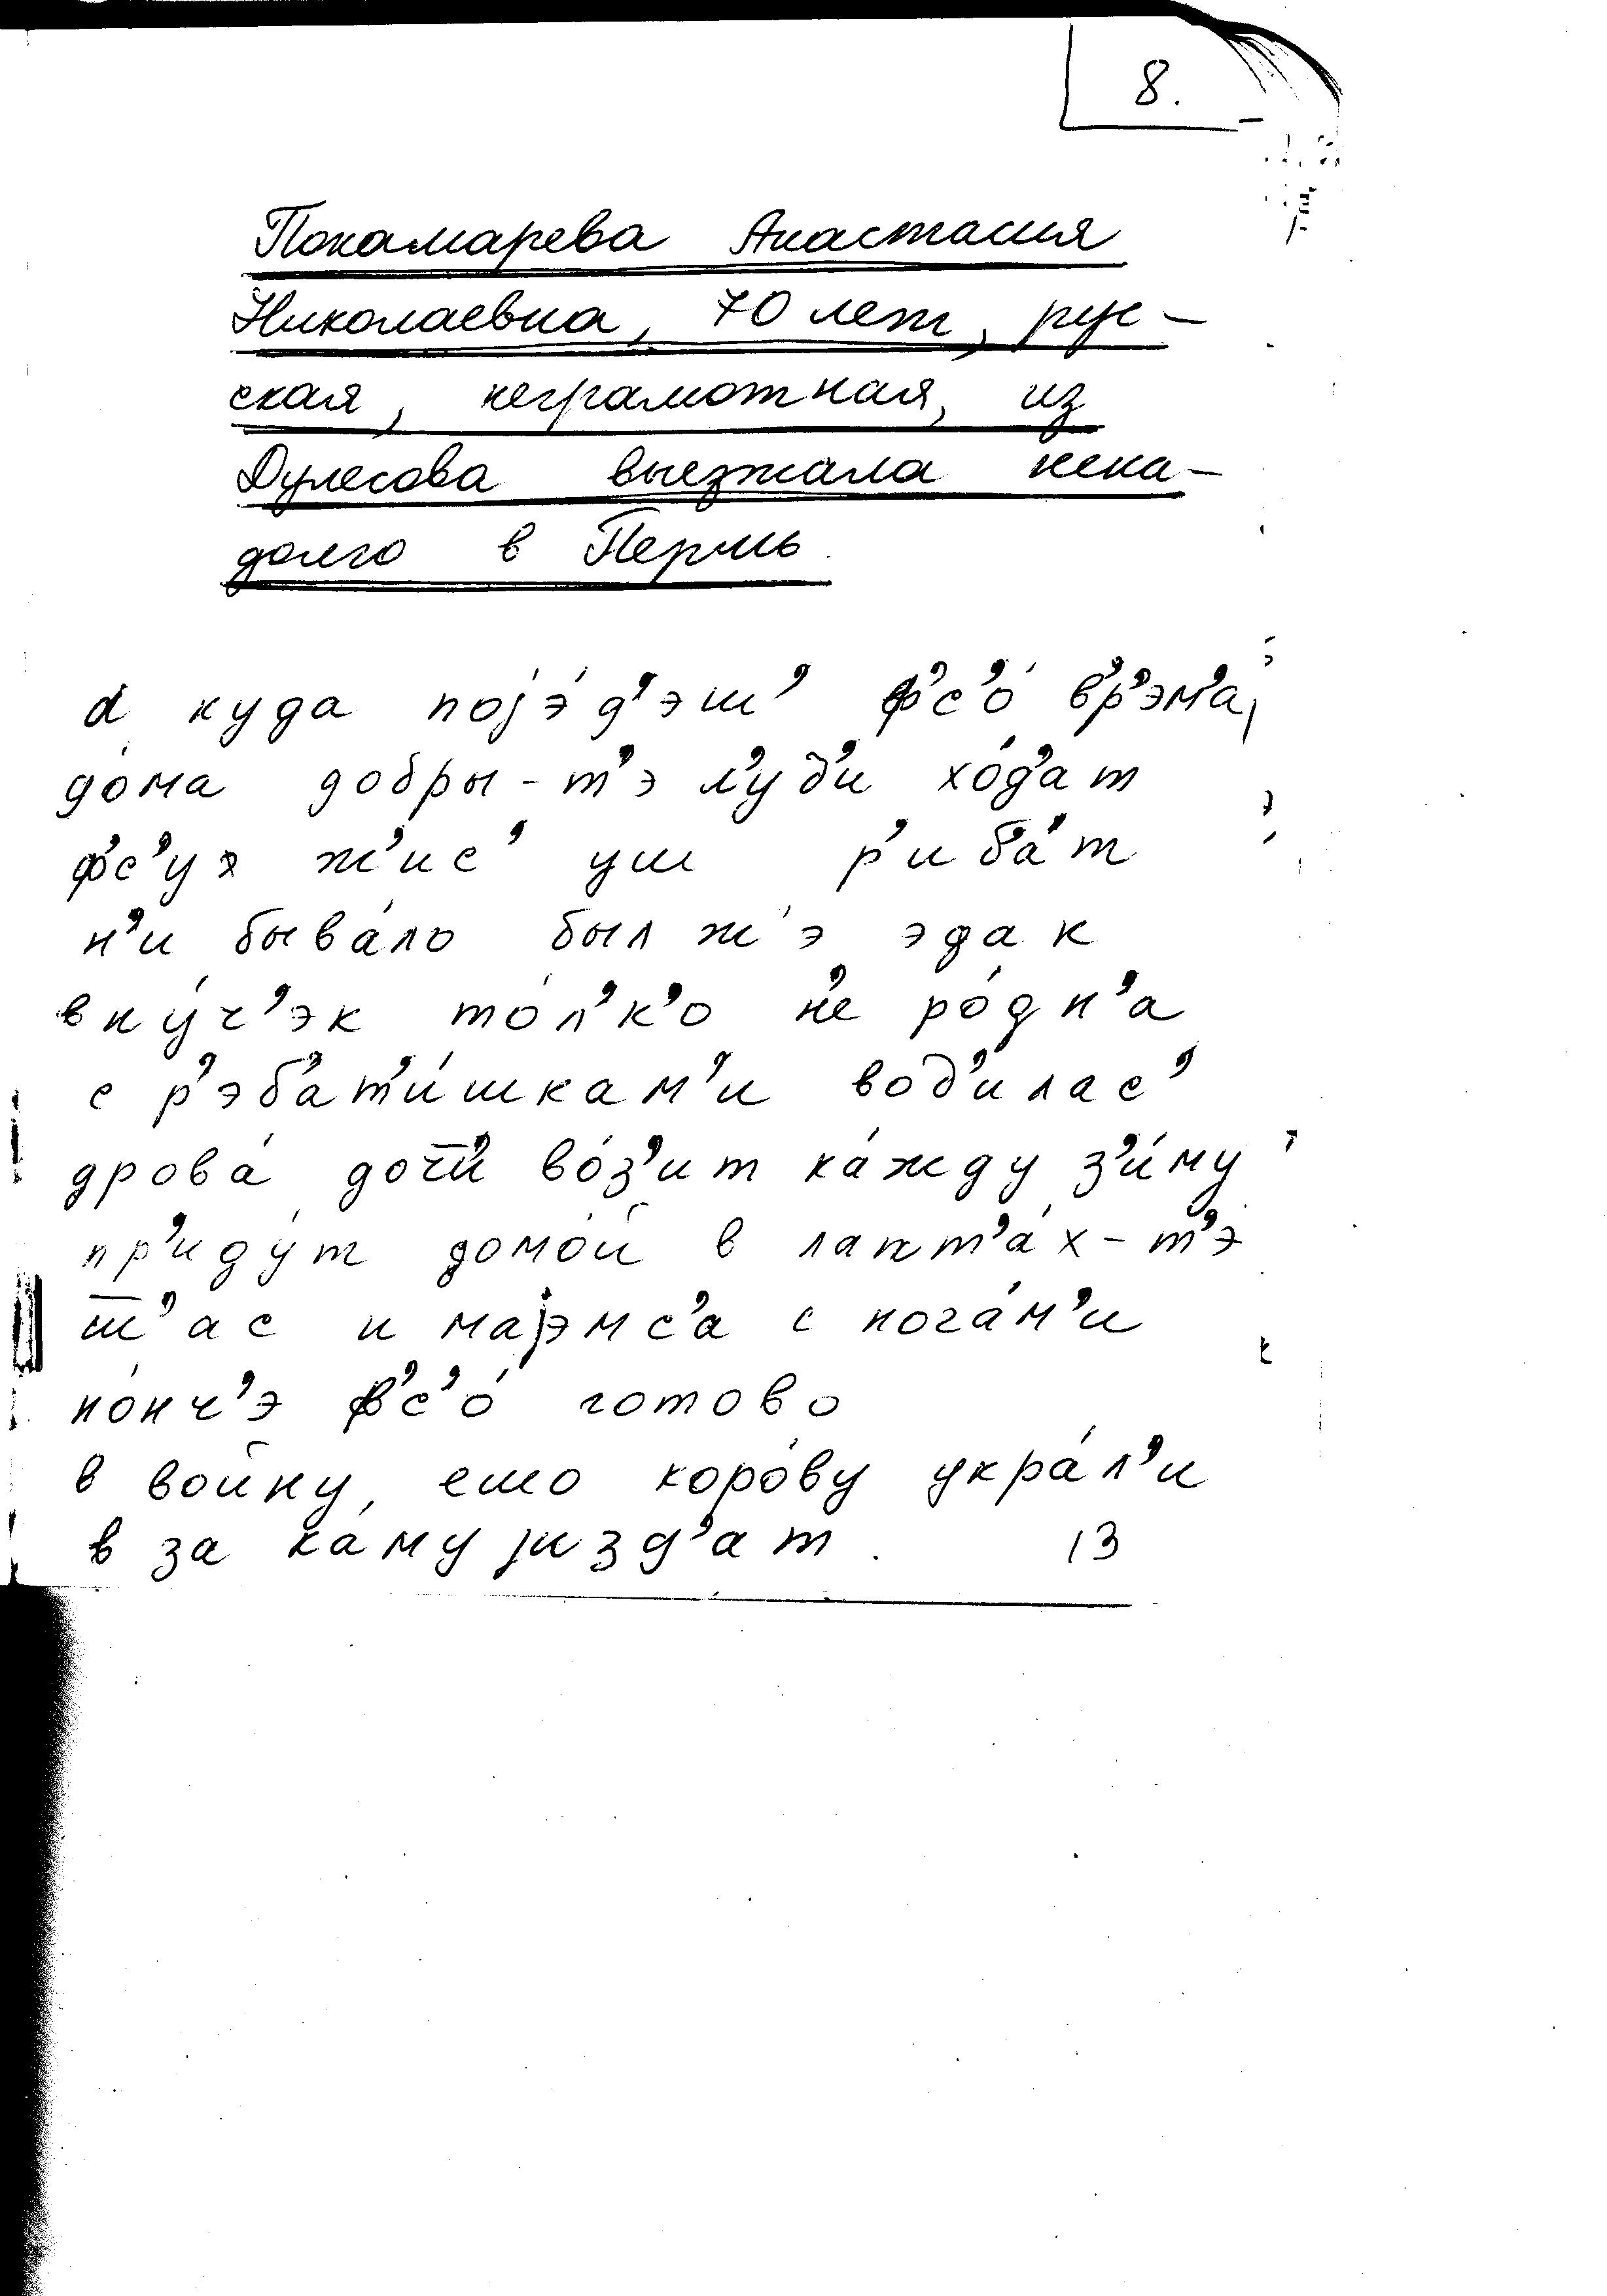 8.
Понамарева Анастасия
Николаевна, 70 лет, рус-
ская, неграмотная, из
Дулесова выезжала нена-
долго в Пермь.
а куда поjэ́д'эш' ф'с'о́ в'р'эм'а,
до́ма добры-т'э л'уд'и хо́д'ат
ф'с'у ж'ис' уш р'иб'а́т
н'и быва́ло был ж'э эдак
вну́ч'эк то́л'к'о н'е ро́дн'а
с р'эб'ат'и́шкам'и вод'илас'
дрова́ доч̅'и во́з'ит ка́жду з'и́му
пр'иду́т домо́й в лапт'а́х-т'э
ш̅'ас и маjэмс'а с нога́м'и
но́нч'э в'с'о́ готово
в войну, ешо коро́ву укра́л'и
в за ка́му jизд'ат. 13